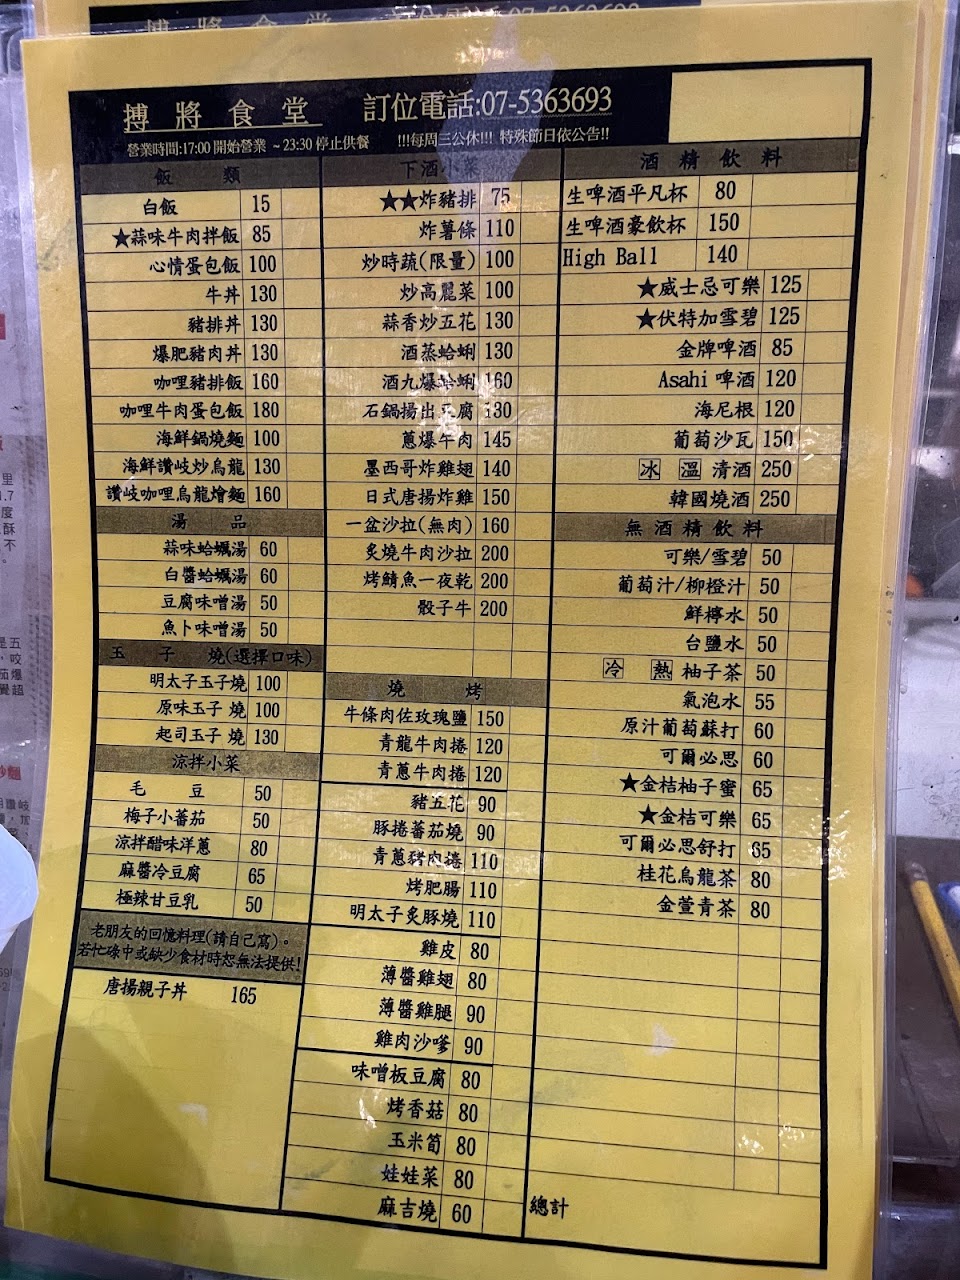 搏將食堂 訂位電話:07-5363693
營業時間:17:00 開始營業 ~ 23:30 停止供餐 !!!每周三公休!!! 特殊節日依公告!!
飯 類
白飯 15
★蒜味牛肉拌飯 85
心情蛋包飯 100
牛丼 130
豬排丼 130
爆肥豬肉丼 130
咖哩豬排飯 160
咖哩牛肉蛋包飯 180
海鮮鍋燒麵 100
海鮮讚岐炒烏龍 130
讚岐咖哩烏龍燴麵 160
湯 品
蒜味蛤蠣湯 60
白醬蛤蠣湯 60
豆腐味噌湯 50
魚卜味噌湯 50
玉 子 燒(選擇口味)
明太子玉子燒 100
原味玉子 燒 100
起司玉子 燒 130
涼拌小菜
毛 豆 50
梅子小蕃茄 50
涼拌醋味洋蔥 80
麻醬冷豆腐 65
極辣甘豆乳 50
老朋友的回憶料理(請自己寫)。
若忙碌中或缺少食材時恕無法提供!
唐揚親子丼 165
下酒小菜
★★炸豬排 75
炸薯條 110
炒時蔬(限量) 100
炒高麗菜 100
蒜香炒五花 130
酒蒸蛤蜊 130
酒九爆蛤蜊 160
石鍋揚出豆腐 130
蔥爆牛肉 145
墨西哥炸雞翅 140
日式唐揚炸雞 150
一盆沙拉(無肉) 160
炙燒牛肉沙拉 200
烤鯖魚一夜乾 200
骰子牛 200
燒 烤
牛條肉佐玫瑰鹽 150
青龍牛肉捲 120
青蔥牛肉捲 120
豬五花 90
豚捲蕃茄燒 90
青蔥豬肉捲 110
烤肥腸 110
明太子炙豚燒 110
雞皮 80
薄醬雞翅 80
薄醬雞腿 90
雞肉沙嗲 90
味噌板豆腐 80
烤香菇 80
玉米筍 80
娃娃菜 80
麻吉燒 60
酒精飲料
生啤酒平凡杯 80
生啤酒豪飲杯 150
High Ball 140
★威士忌可樂 125
★伏特加雪碧 125
金牌啤酒 85
Asahi 啤酒 120
海尼根 120
葡萄沙瓦 150
冰 溫 清酒 250
韓國燒酒 250
無酒精飲料
可樂/雪碧 50
葡萄汁/柳橙汁 50
鮮檸水 50
台鹽水 50
冷 熱 柚子茶 50
氣泡水 55
原汁葡萄蘇打 60
可爾必思 60
★金桔柚子蜜 65
★金桔可樂 65
可爾必思舒打 65
桂花烏龍茶 80
金萱青茶 80
總計